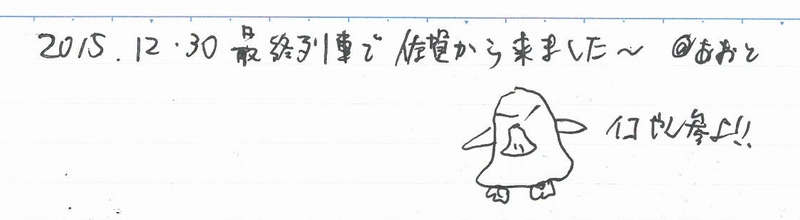 2015.12.30 最終列車で 佐賀から来ました〜 @あおと
イコやん参上!!